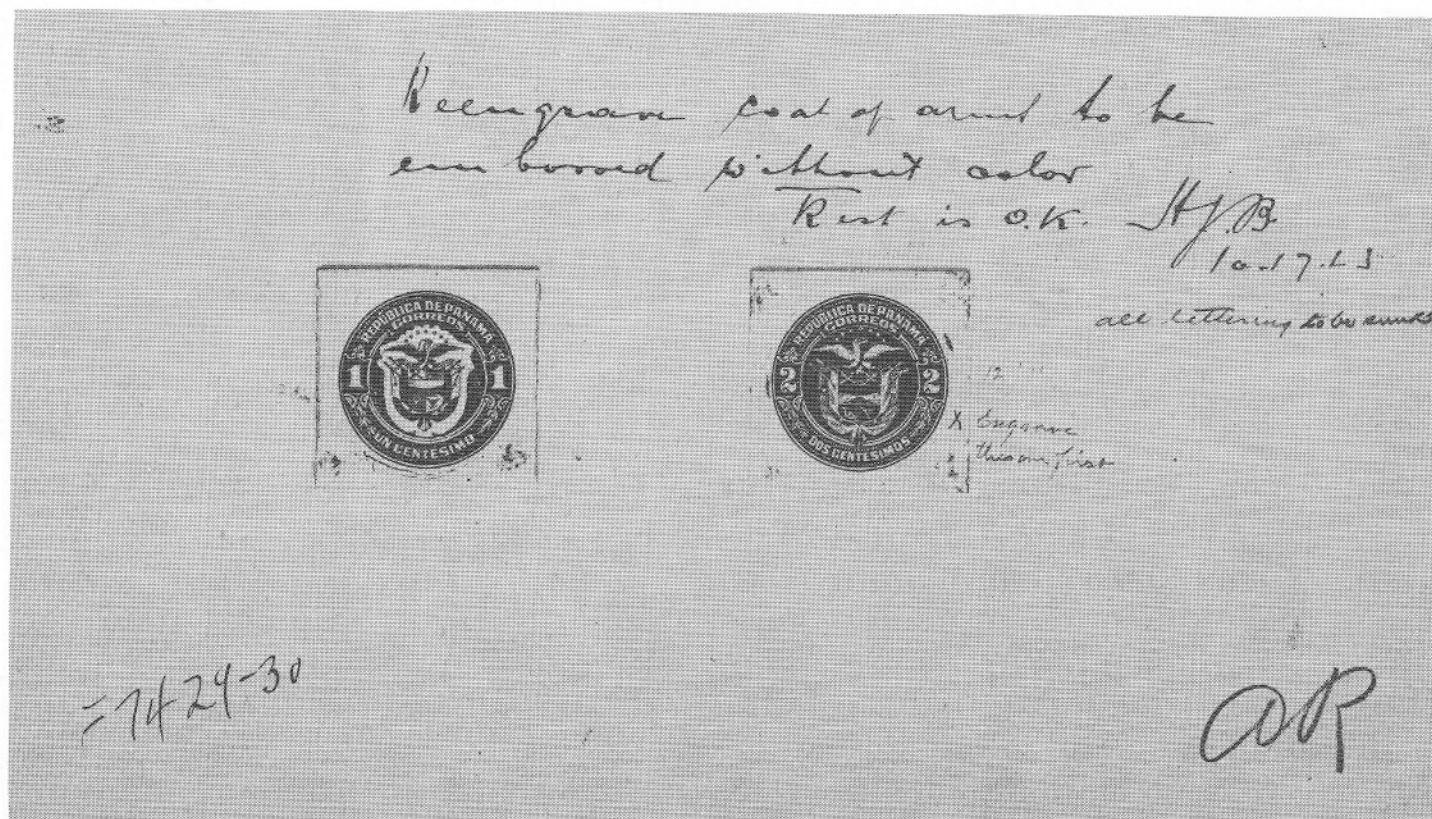 Reengrave coat of arms to be
embossed without color
Rest is O.K. H.J.B.
10.17.23
all lettering to be
REPÚBLICA DE PANAMA
CORREOS
1 1
UN CENTESIMO
REPUBLICA DE PANAMA
CORREOS
2 2
DOS CENTESIMOS
12
X Engrave
this one first
=7429-30